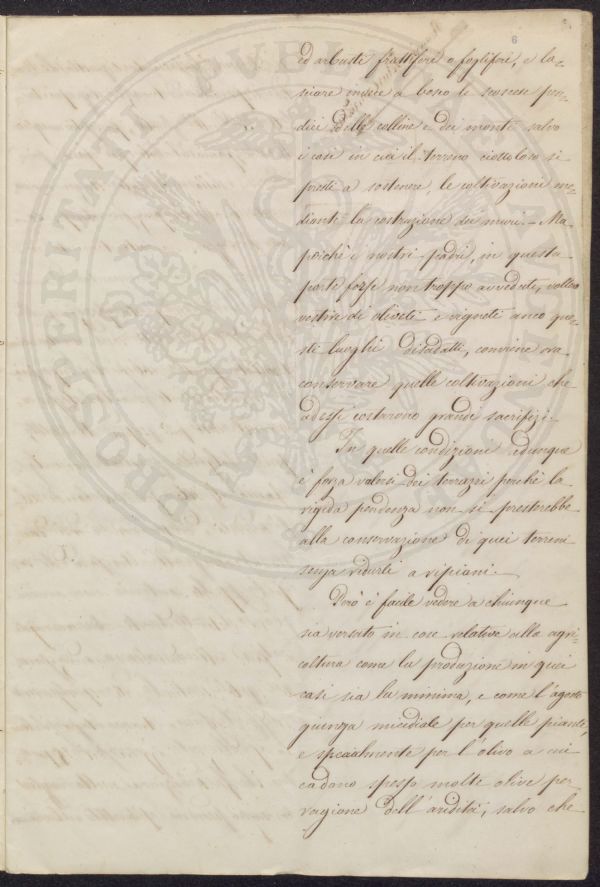 6
ed arbusti fruttiferi o fogliferi, e la=
sciare invece a bosco le scoscese pen=
dici delle colline e dei monti salvo
i casi in cui il terreno ciottoloso si
presti a sostenere le coltivazioni me=
dianti la costruzione dei muri. - Ma
poichè i nostri padri, in questa
parte forse non troppo avveduti, vollero
vestire di oliveti e vigneti anco que=
sti luoghi disadatti, conviene ora
conservare quelle coltivazioni che
ad essi costarono grandi sacrifizi.
In quelle condizioni adunque
è forza valersi dei terrazzi perchè la
rigida pendenza non si presterebbe
alla conservazione di quei terreni
senza ridurli a ripiani.
Però è facile vedere a chiunque
sia versato in cose relative alla agri=
coltura come la produzione in quei
casi sia la minima, e come l'agosto
giunga micidiale per quelle piante,
e specialmente per l'olivo a cui
cadono spesso molte olive per
ragione dell'aridità, salvo che
PROSPERITATI PVBLICAE AVGENDAE